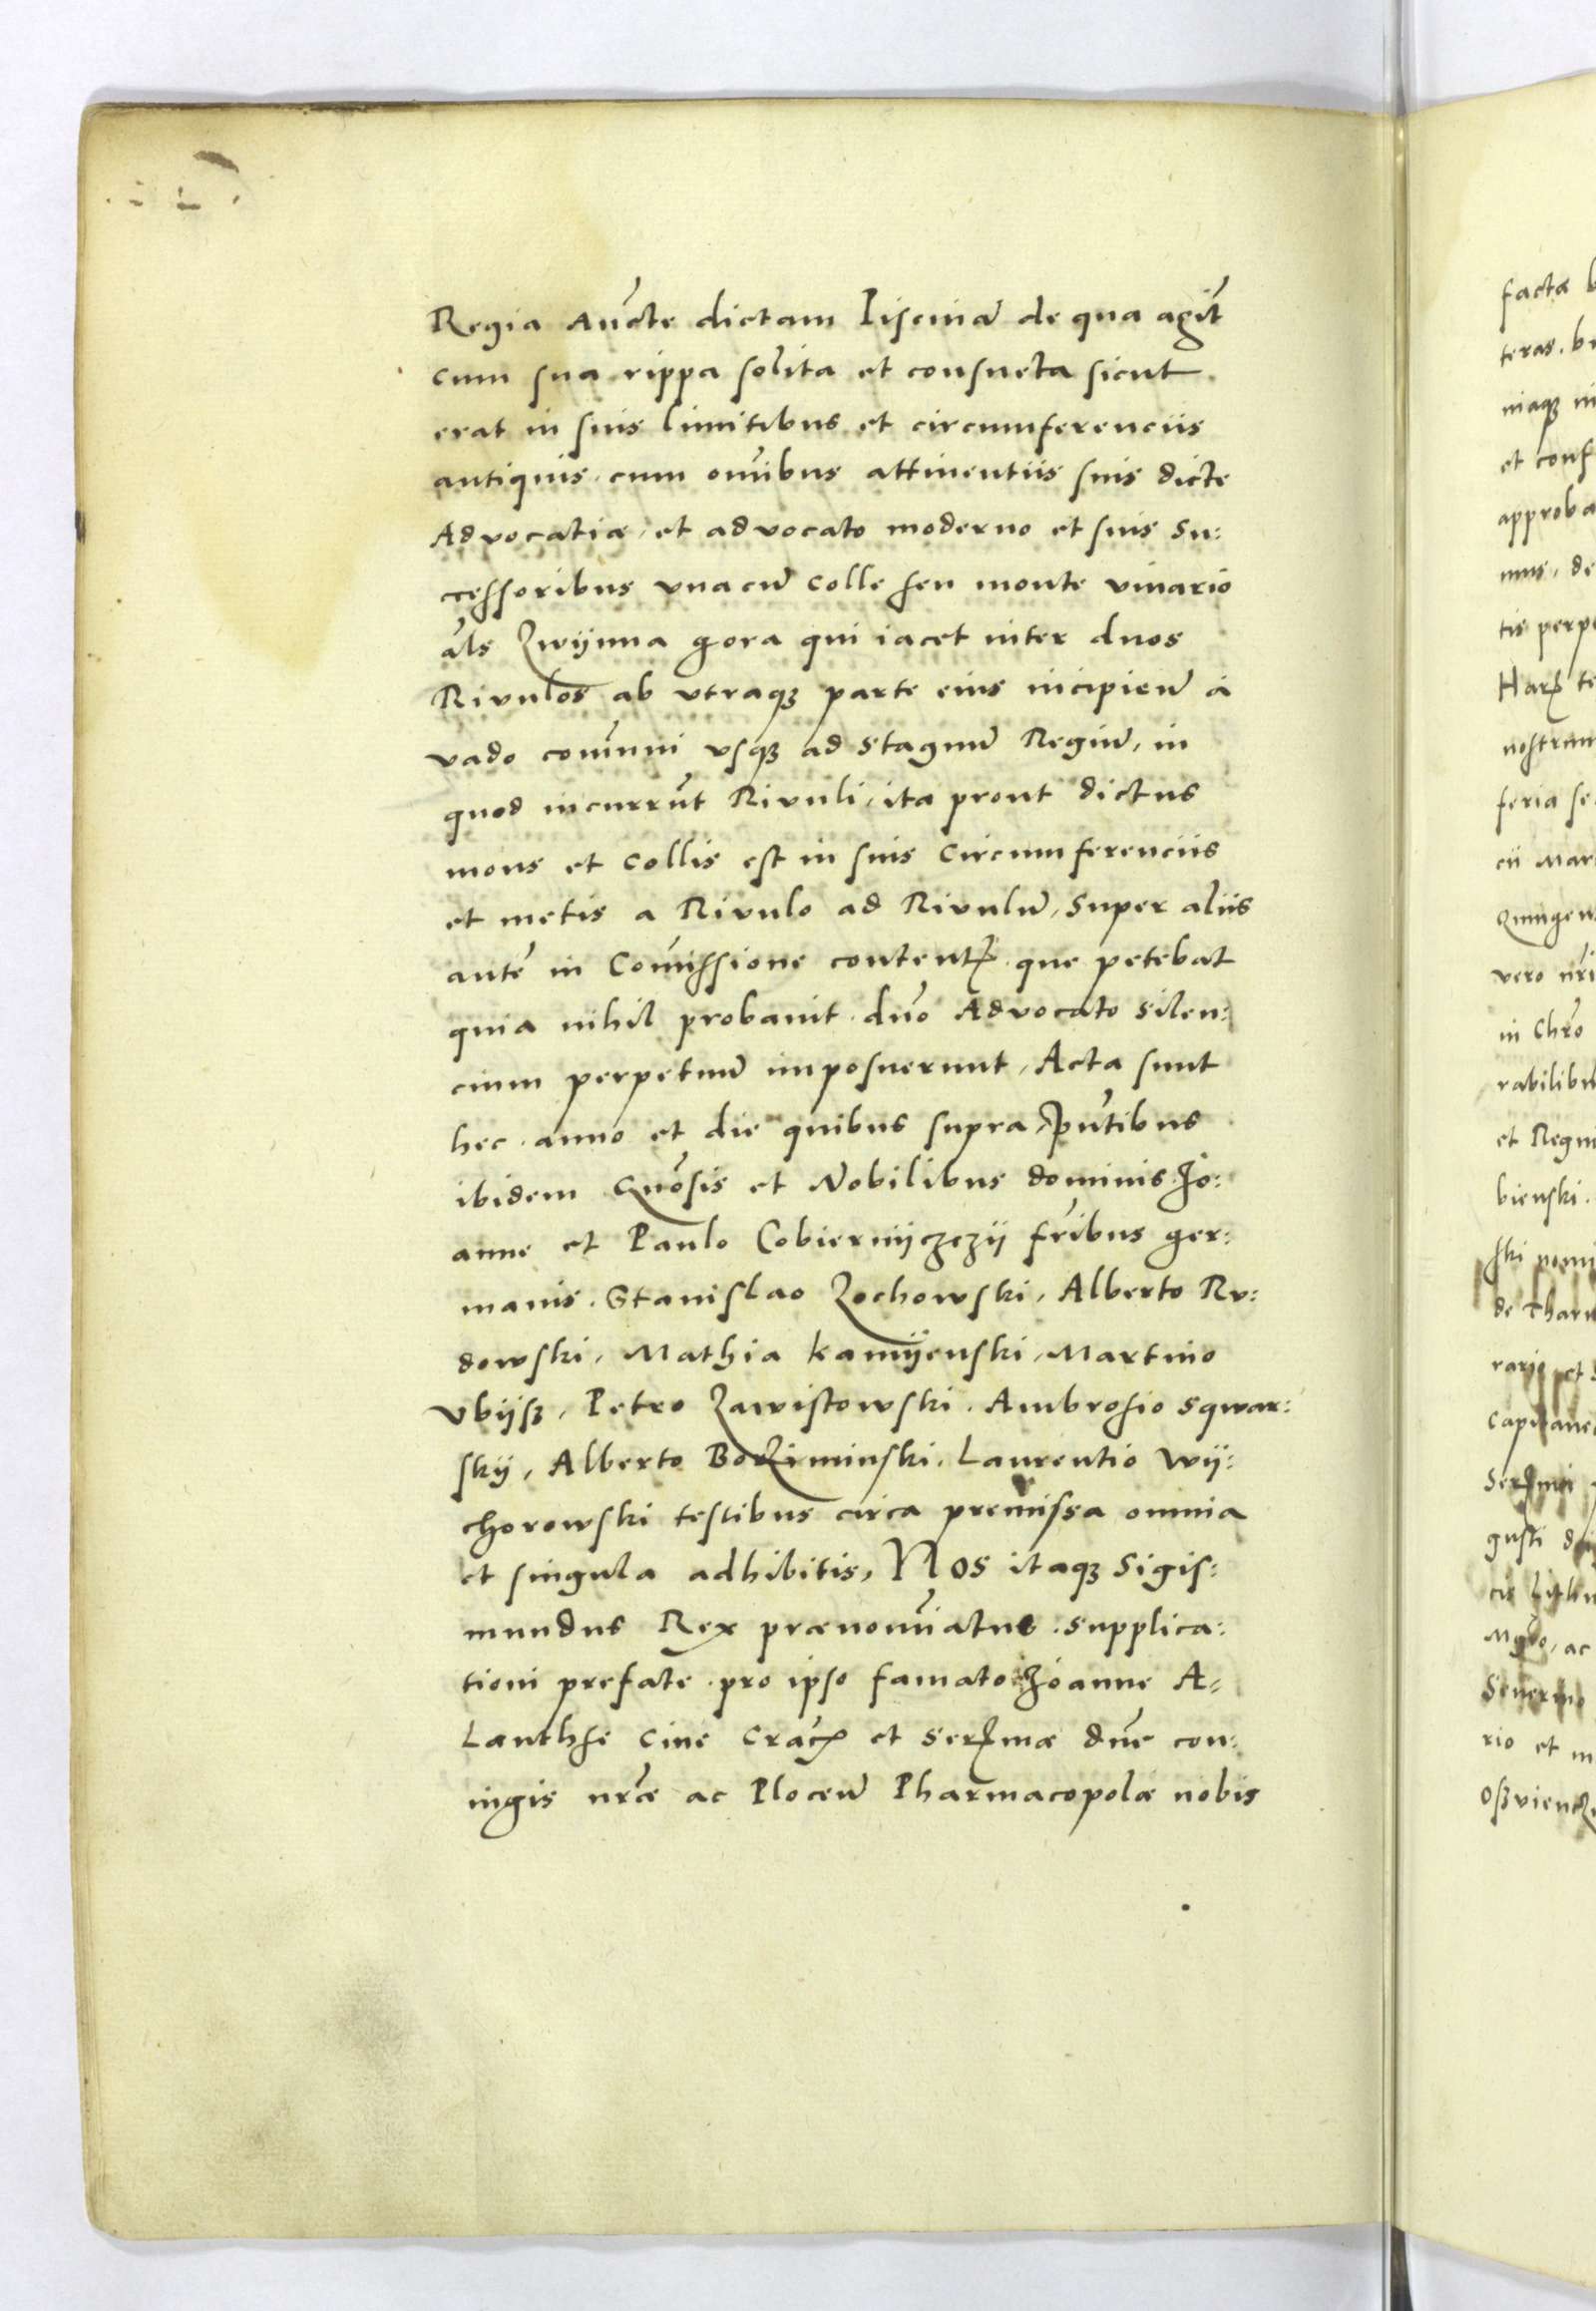 Regia Auc̃te dictam Piscinā de qua agit̃
cum sua rippa solita et consueta sicut
erat in suis limitibus et circumferenciis
antiquis cum om̃ibus attinentiis suis dicte
Advocatiæ, et advocato moderno et suis Su:
ccessoribus vnacū colle seu monte vinario
al̃s Zwijnna gora qui iacet inter duos
Rivulos ab vtraqꝫ parte eius incipieñ a
vado com̃uni vsqꝫ ad stagnū Regiū, in
quod incurrũt Rivuli, ita prout dictus
mons et collis est in suis circumferenciis
et metis a Rivulo ad Rivulū, Super aliis
autē in Com̃issione contentꝭ que petebat
quia nihil probauit dño Advocato silen:
cium perpetuū imposuerunt, Acta sunt
hec anno et die quibus supra, Pñtibus
ibidem Gñosis et Nobilibus dominis Jo:
anne et Paulo Cobiernijczij fr̃ibus ger:
manis. Stanislao Zochowski, Alberto Ru:
dowski, Mathia kamijenski, Martino
Vbijsz, Petro Zawistowski. Ambrosio Sqwar:
skij, Alberto Borziminski. Laurentio Wij:
chorowski testibus circa premissa omnia
et singula adhibitis, Nos itaqꝫ Sigis:
mundus Rex prænom̃iatus supplica:
tioni prefate pro ipso famato Joanne A=
Lanthse Cive Crac̃ꝭ et Serꝭmæ dñe con:
iugis nr̃æ ac Plocen̄ Pharmacopolæ nobis
facta
teras.
niaqꝫ
et conf
approba
mus, de
tis perp
Harꝭ te
nostrum
feria se
cii Mar
Quingen
vero nr̃i
in Chr̃o
rabilibu
et Regni
bienski.
ski nomi
de Thar
rario et
Capitane
Serꝭmi
gusti
cis Lith
Mgr̃o, ac
Seuer
rio et m
Oszvien